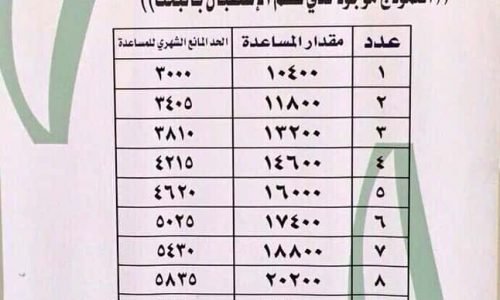 ((النموذج موجود لدي قسم الإستقبال بالبيت))
عدد مقدار المساعدة الحد المانع الشهري للمساعدة
١ ١٠٤٠٠ ٣٠٠٠
٢ ١١٨٠٠ ٣٤٠٥
٣ ١٣٢٠٠ ٣٨١٠
٤ ١٤٦٠٠ ٤٢١٥
٥ ١٦٠٠٠ ٤٦٢٠
٦ ١٧٤٠٠ ٥٠٢٥
٧ ١٨٨٠٠ ٥٤٣٠
٨ ٢٠٢٠٠ ٥٨٣٥